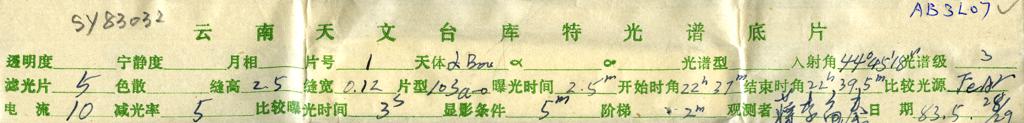 SY83032
AB3L07
云南天文台库特光谱底片
透明度 宁静度 月相 片号 1 天体 α Boo α δ 光谱型 入射角 44°45'18" 光谱级 3
滤光片 5 色散 缝高 2.5 缝宽 0.12 片型 103a-0 曝光时间 2.5m 开始时角 22h 37m 结束时角 22h 39.5m 比较光源 FeAr
电流 10 减光率 5 比较曝光时间 3s 显影条件 5m 阶梯 2m 观测者 日期 83.5.28/29